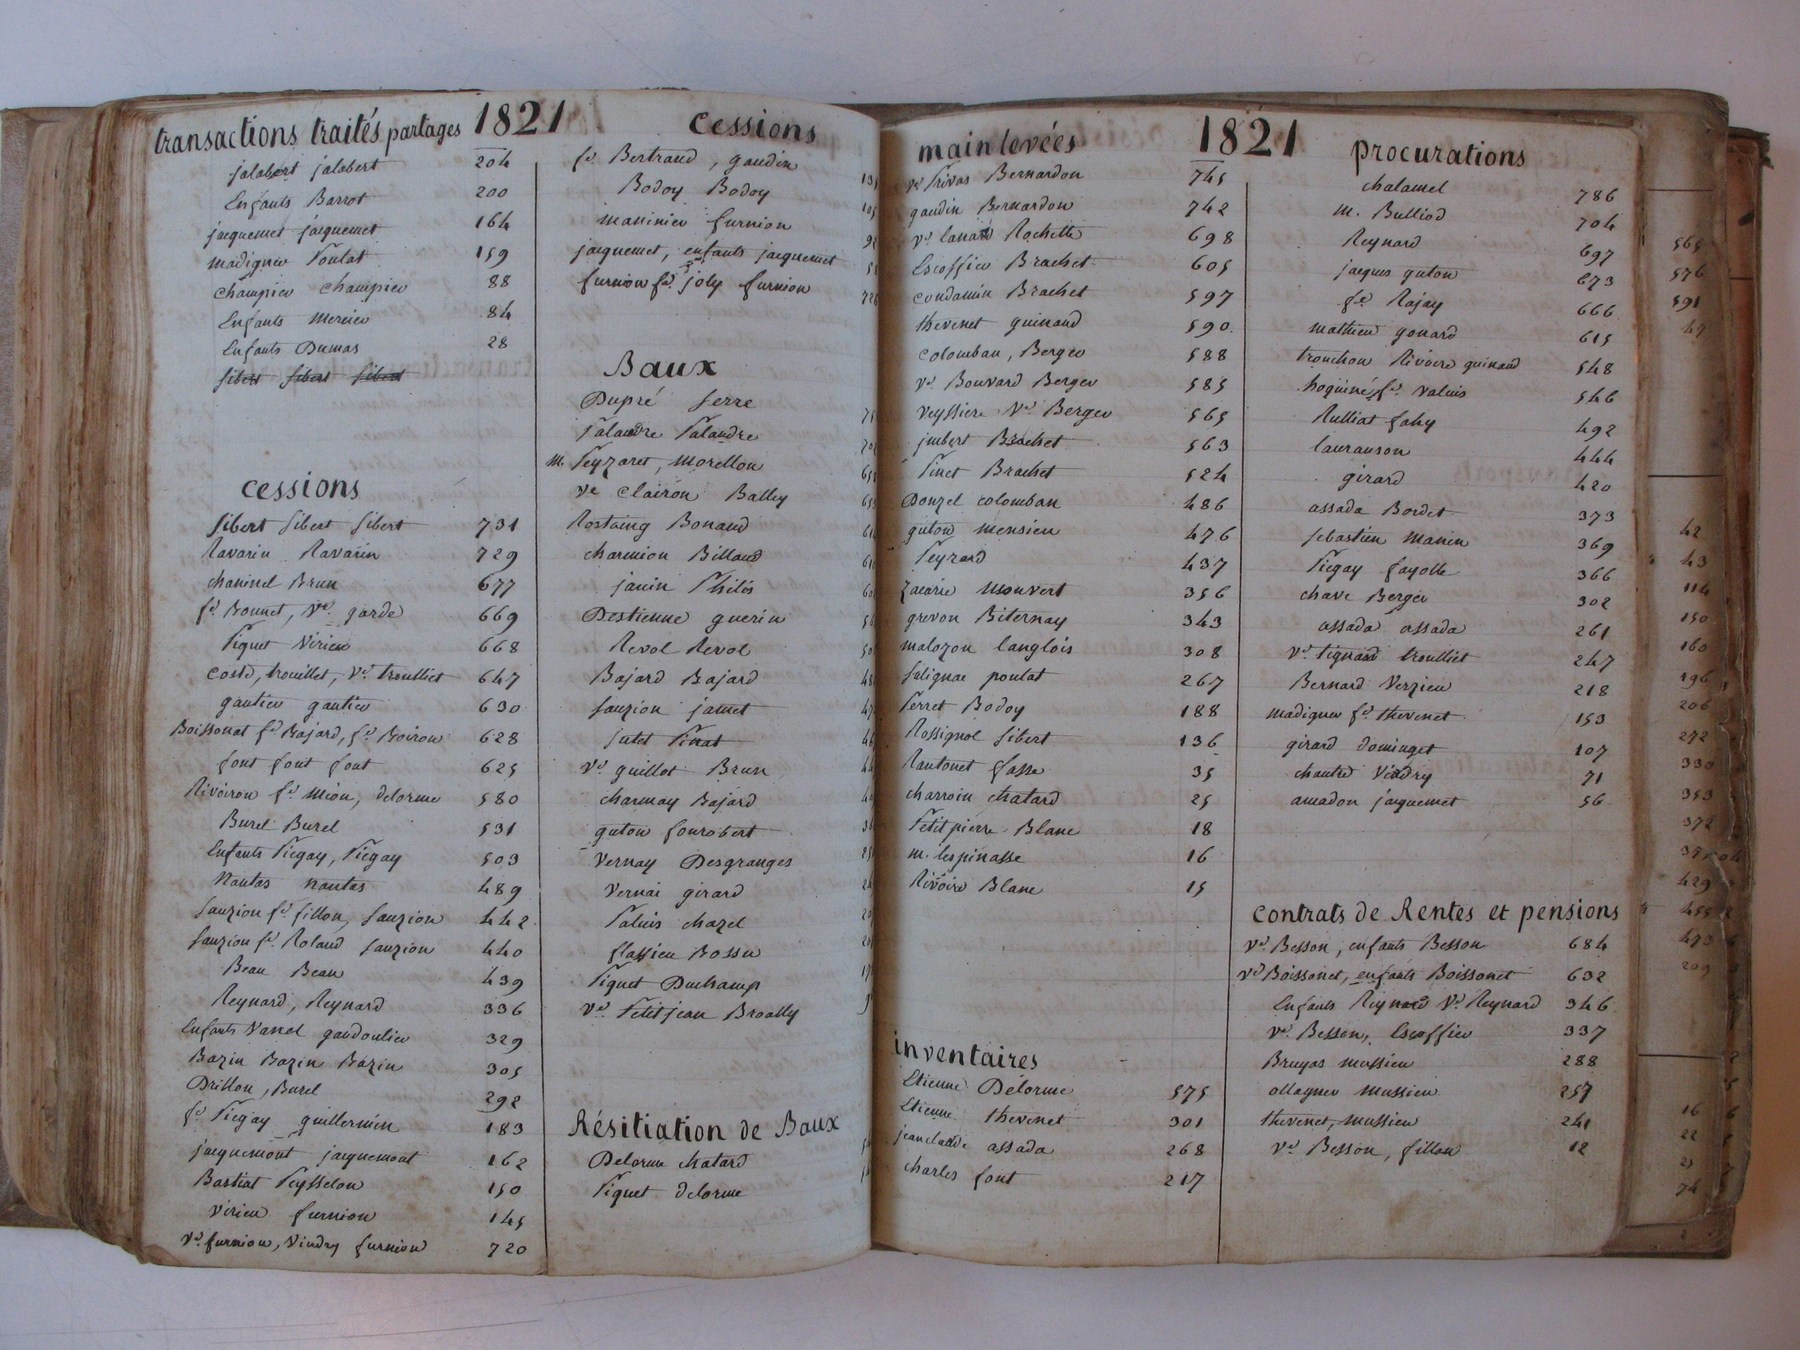 transactions traités partages 1821
jalabert jalabert 204
Enfants Barrot 200
jacquemet jacquemet 164
madigner Poulat 159
Champier Champier 88
Enfants Mercier 84
Enfants Dumas 28
Sibert Sibert Sibert
cessions
Sibert Sibert Sibert 731
Ravarin Ravarin 729
chaninel Brun 677
fe Bonnet, Ve garde 669
Piquet Virieu 668
Coste, trouillet, Ve trouillet 647
gautier gautier 630
Boissonat fe Bajard, fe Boiron 628
font font font 625
Rivoiron fe Mion, delorme 580
Burel Burel 531
Enfants Piegay, Piegay 503
Nantas nantas 489
Sauzion fe fillon, Sauzion 442
Sauzion fe Roland Sauzion 440
Beau Beau 439
Reynard, Reynard 336
Enfants Vanel gaudoulier 329
Bazin Bazin Bazin 305
Drillon, Burel 292
fe Piegay guillermin 183
jacquemont jacquemont 162
Bastiat Peysselon 150
Virieu furnion 145
Ve furnion, Vindry furnion 720
Cessions
fe Bertrand, gaudin
Bodoy Bodoy
maninier furnion
jacquemet, enfants jacquemet
furnion fe joly furnion
Baux
Dupré Serre
Palandre Palandre
M. Peyzaret, Morellon
Ve Clairon Bally
Rostaing Bonand
charmion Billaud
janin Philis
Destienne guerin
Revol Revol
Bajard Bajard
Sauzion jamet
jutet Pinat
Ve guillot Brun
charmay Bajard
guton fourobert
Vernay Desgranges
Vernai girard
Paluis chazel
flassieu Bossu
Piquet Duchamp
Ve Petitjean Broally
Résitiation de Baux
Delorme chatard
Piquet delorme
mainlevées 1821
Ve Privas Bernardon 745
gaudin Bernardon 742
Ve Rochette 698
Escoffier Brachet 605
condamin Brachet 597
thevenet guinand 590
colomban, Berger 588
Ve Bouvard Berger 585
Veyssiere Ve Berger 565
jubert Brachet 563
Pinet Brachet 524
Donzel colomban 486
guton mensieu 476
Peyrard 437
Zacarie Mouvert 356
grevon Biternay 343
malozon langlois 308
Salignac poulat 267
Perret Bodoy 188
Rossignol Sibert 136
Rantonet fasse 35
charroin chatard 25
Petitpierre Blanc 18
M. lespinasse 16
Rivoire Blanc 15
inventaires
Etienne Delorme 575
Etienne thevenet 301
jean claude assada 268
charles font 217
procurations
chalamel 786
M. Bulliod 704
Reynard 697
jacques guton 673
fe Rajay 666
mathieu gonard 615
tronchon Rivoire guinand 548
hoguiné, fe Valuis 546
Rulliat fahy 492
lauranson 444
girard 420
assada Bordet 373
Sebastien Manin 369
Piegay fayolle 366
chave Berger 302
assada assada 261
Ve tignard trouilliet 247
Bernard Verzieu 218
madigner fe thevenet 153
girard dominget 107
chautre Vindry 71
amadon jacquemet 56
contrats de Rentes et pensions
Ve Besson, enfants Besson 684
Ve Boissonet, enfants Boissonet 632
Enfants Reynard Ve Reynard 346
Ve Besson, Escoffier 337
Bruyas mussieu 288
ollagner mussieu 257
thevenet, mussieu 241
Ve Besson, fillon 12
565
576
591
42
43
114
150
160
196
206
272
330
353
372
429
455
473
209
16
22
74